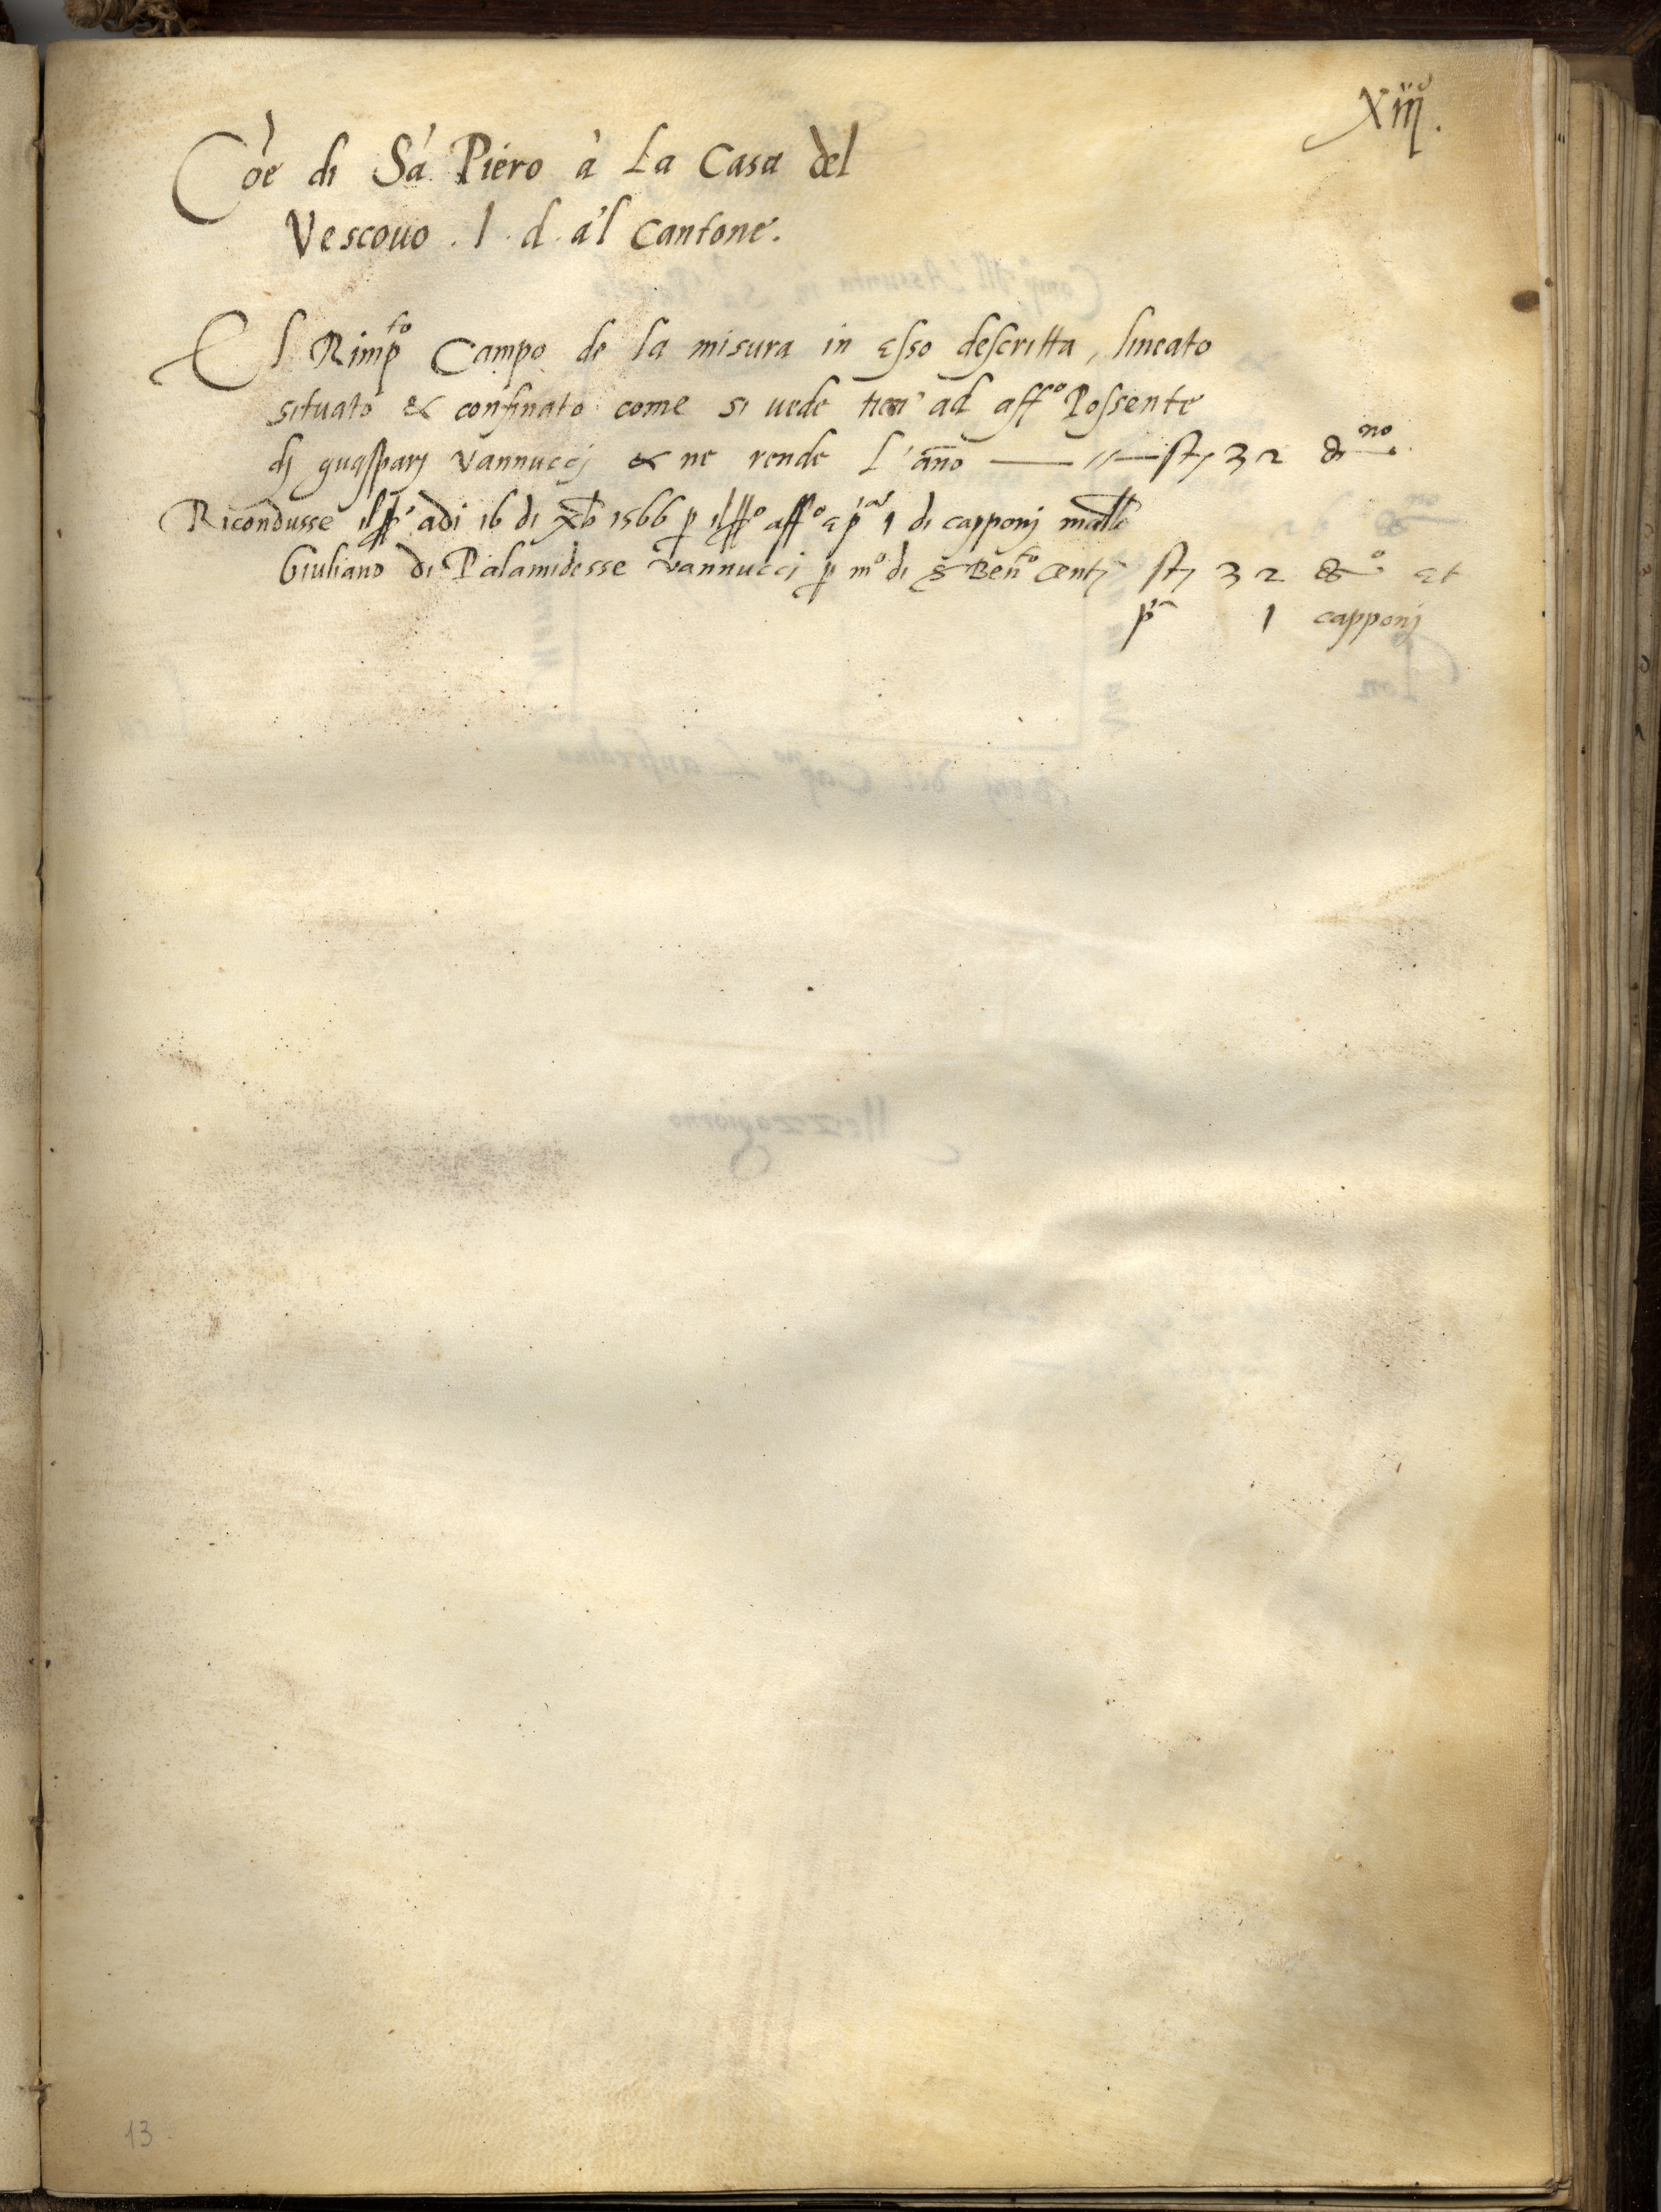 Xiij.
Cõe di Sã Piero à La Casa del
Vescouo . l . d . a'l Cantone.
El Rimp.to Campo de la misura in esso descritta, lineato
situato & confinato come si uede tien' ad aff.o Possente
dj guasparj Vannuccj & ne rende L'anño st; 32 no
Ricondusse il adi 16 di Xb 1566 p il aff.o e p.a 1 di capponj
Giuliano di Palamidesse Vannuccj p m.o di Ben.to Cent; st; 32 et
p.a 1 capponj
13